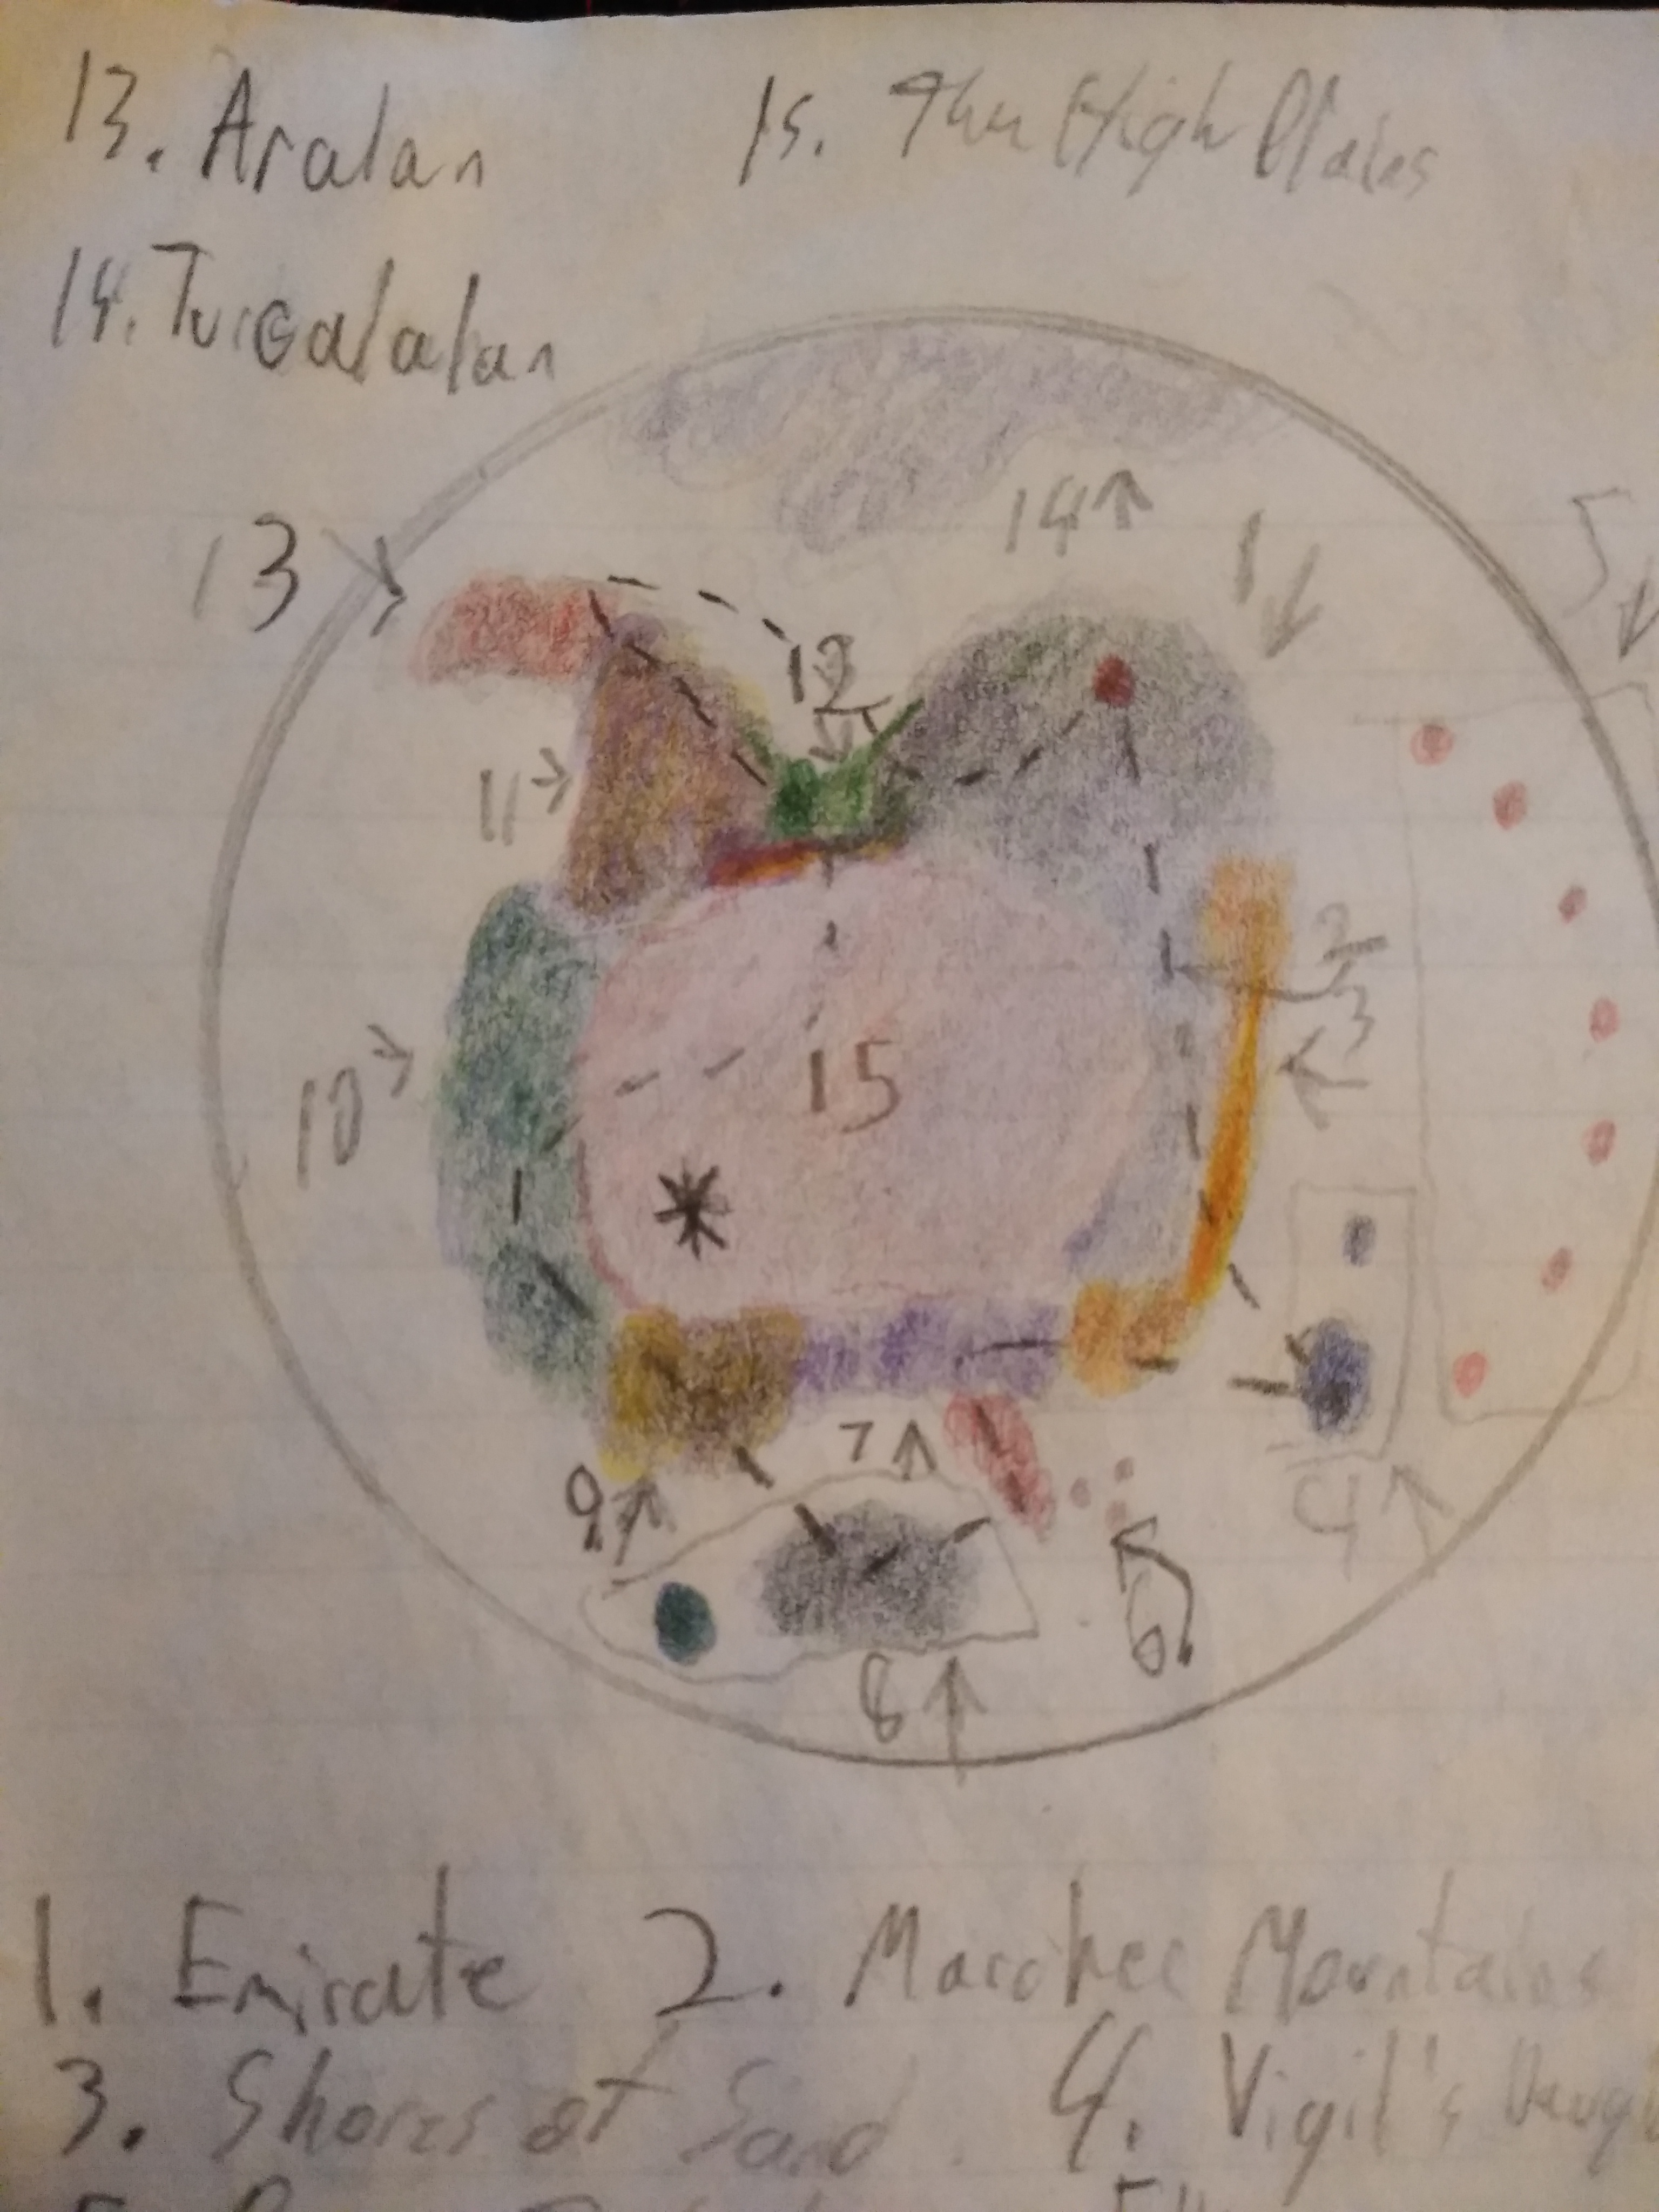 13. Aralan 15. The High Plains
14. Turgalalan
14
1
5
13
12
11
2
3
15
10
7
9
4
6
8
1. Emirate 2. Marchec Mountains
3. Shores of Sand 4. Vigil's